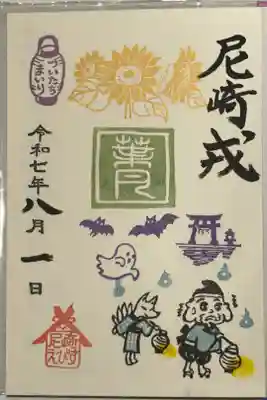 尼崎戎
葉月
ついたち
まいり
令和七年八月一日
尼崎
えびす